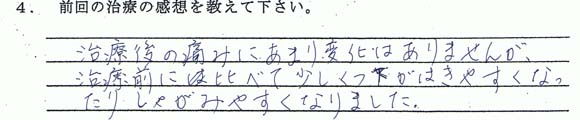 4. 前回の治療の感想を教えて下さい。
治療後の痛みにあまり変化はありませんが、
治療前に比べて少しくつ下がはきやすくなっ
たりしゃがみやすくなりました。